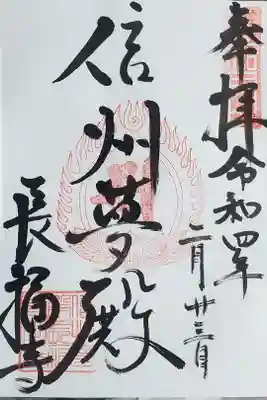 奉拝 令和四年
二月廿三日
信州夢殿
長福寺